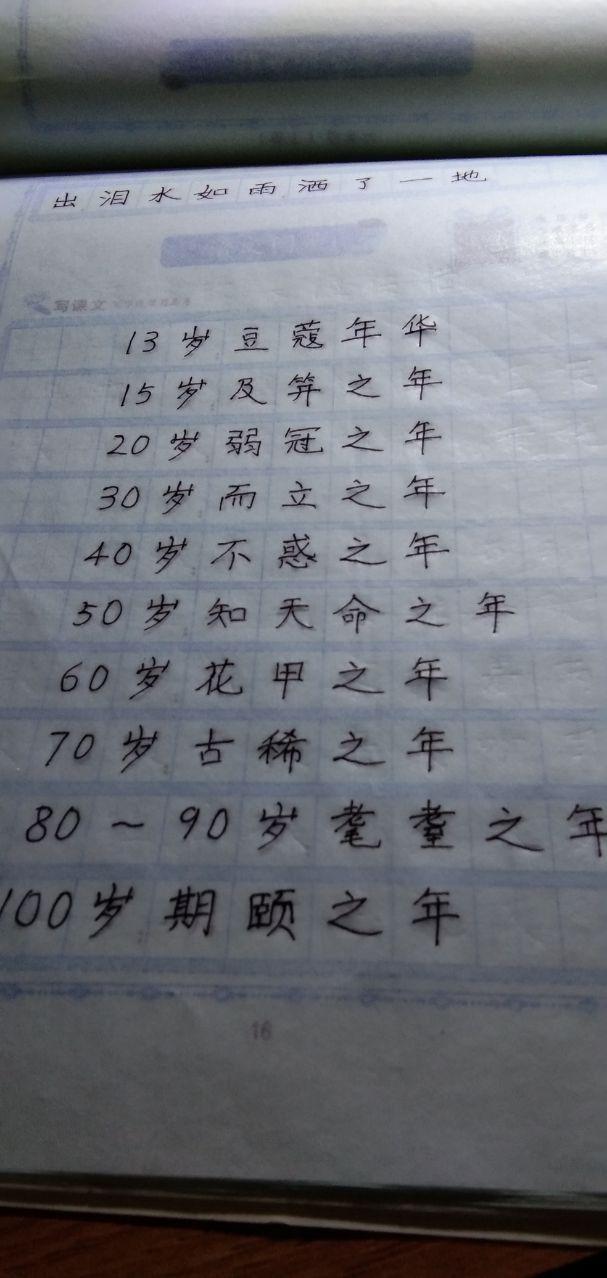 出泪水如雨洒了一地
写课文
13岁豆蔻年华
15岁及笄之年
20岁弱冠之年
30岁而立之年
40岁不惑之年
50岁知天命之年
60岁花甲之年
70岁古稀之年
80~90岁耄耋之年
100岁期颐之年
16